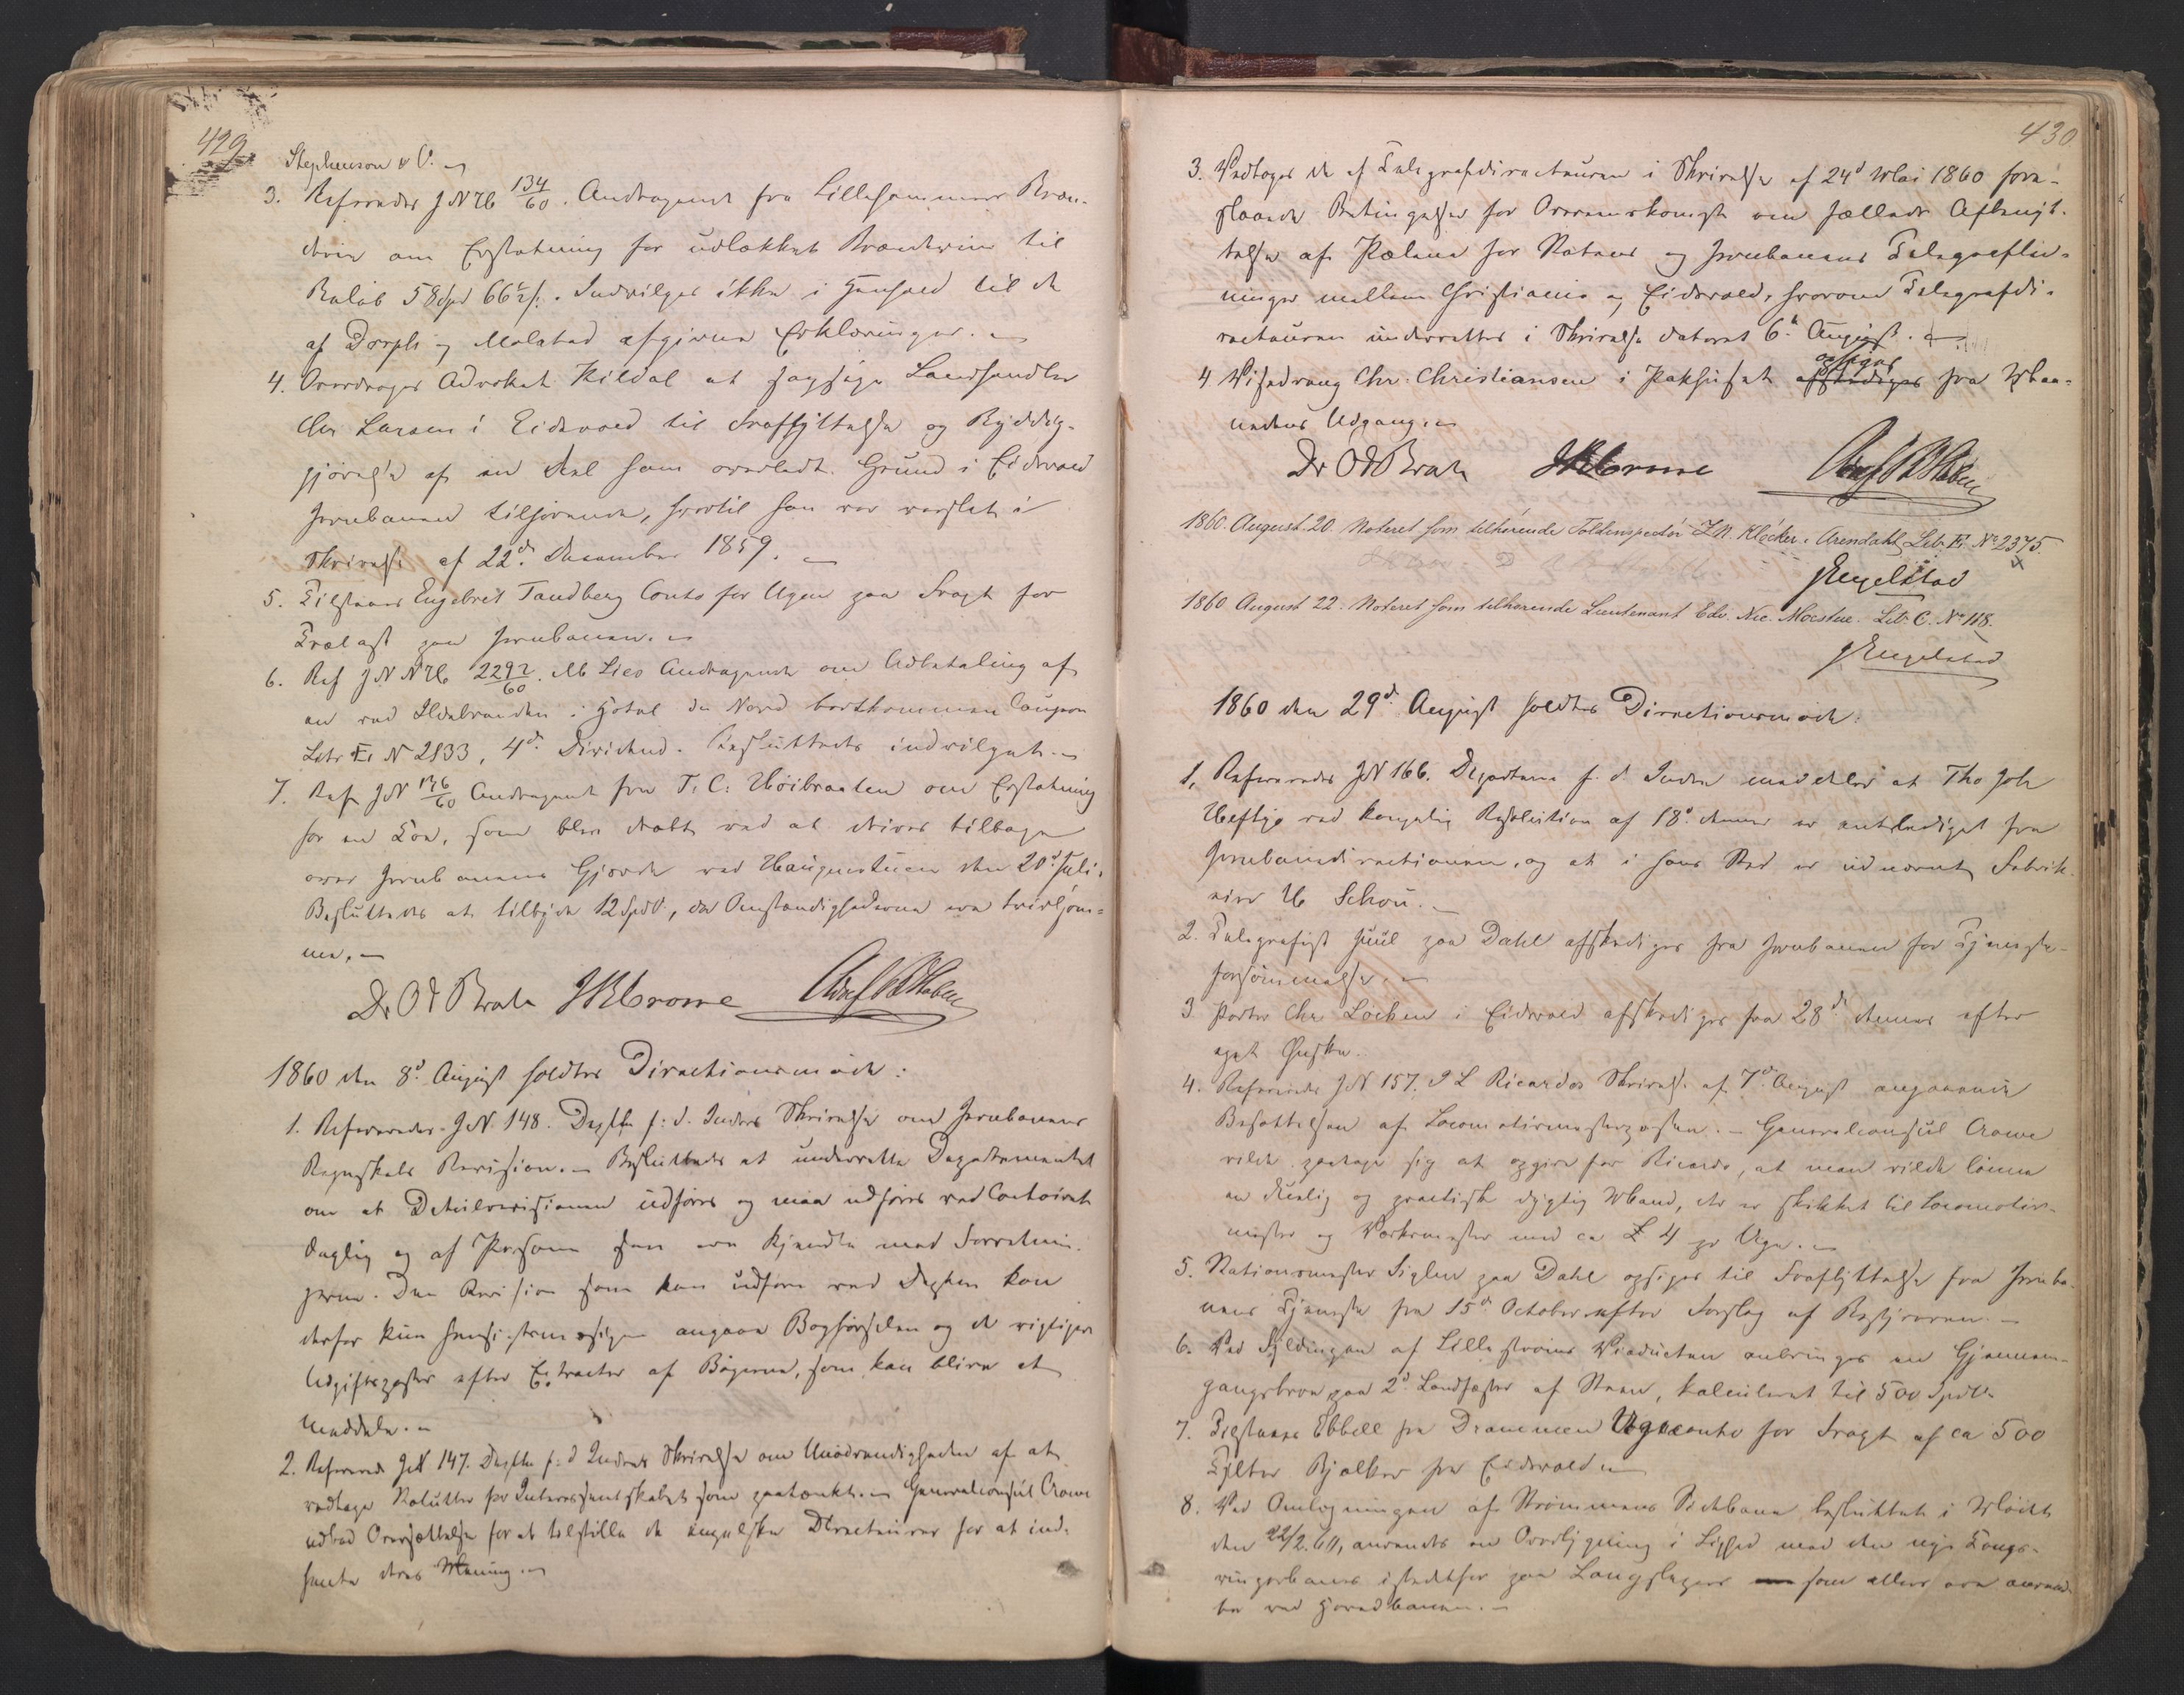 429.
Stephenson & C. –
3. Refereredes J N H 134/60. Andragende fra Lillehammer Bræn-
deri om Erstatning for udlækket Brændeviin til
Beløb 58 Spd 66½ s. Indvilges ikke i Henhold til de
af Dorph og Molstad afgivne Erklæringer. –
4. Overdrages Advokat Kildal at sagsøge Landhandler
Chr Larsen i Eidsvold til Fraflyttelse og Ryddig-
gjørelse af en deel ham overladt Grund i Eidsvold
Jernbanen tilhørende, hvortil han var varslet i
Skrivelse af 22d December 1859. –
5. Tilstaaes Engebret Tandberg Conto for Ugen paa Fragt for
Trælast paa Jernbanen. –
6. Ref J N H 2292/60. M Lies Andragende om Udbetaling af
en ved Ildebranden i Hotel du Nord bortkommen Coupon
Litr E N 2833, 4d Dividend. Besluttedes indvilget. –
7. Ref J N 136/60 Andragende fra T. C. Høibraaten om Erstatning
for en Ko, som blev dræbt ved at drives tilbage
over Jernbanens Gjærde ved Haugerstuen den 20d Juli.
Besluttedes at tilbyde 12 Spd, da Omstændighederne ere tvivlsom-
me. –
Dr O J Broch J R Crowe
1860 den 8d August holdtes Directionsmøde:
1. Refereredes J N 148. Deptm f. d. Indres Skrivelse om Jernbanens
Regnskabs Revision. – Besluttedes at underrette Departementet
om at Detailrevisionen udføres og maa udføres ved Contoiret
daglig og af Personer som ere kjendte med Forretnin-
gerne. Den Revision som kan udføres ved Depten kan
derfor kun hensigtsmæssigen angaae Bogførselen og de vigtigere
Udgiftsposter efter Extracter af Bøgerne, som kan blive at
meddele. –
2. Refereredes J N 147. Deptm f. d Indres Skrivelse om Unødvendigheden af at
vedtage Statutter for Interessentskabet som paatænkt. – Generalconsul Crowe
udbad Oversættelse for at tilstille de engelske Directeurer for at ind-
hente deres Mening. –
430
3. Vedtoges de af Telegrafdirecteuren i Skrivelse af 24d Mai 1860 fore-
slaaede Betingelser for Overenskomst om fælleds Afbenyt-
telse af Pælene for Statens og Jernbanens Telegrafled-
ninger mellem Christiania og Eidsvold, hvorom Telegrafdi-
recteuren underrettes i Skrivelse dateret 6te August. –
opsiges
4 Visedreng Chr. Christiansen i Pakhuset afskediges fra Maa-
nedens Udgang. –
Dr O J Broch J R Crowe
1860. August. 20. Noteret som tilhørende Toldinspectør J. N. Kløcker i Arendahl, Litr. E. No 2375.
JEngelstad
1860 August 22. Noteret som tilhørende Lieutenant Edv. Nic. Moestue. Litr. C. No 118.
JEngelstad
1860 den 29d August holdtes Directionsmøde:
1. Refereredes JN 166. Departem f. d. Indre meddeler at Tho Joh
Heftye ved kongelig Resolution af 18d dennes er entlediget fra
Jernbanedirectionen, og at i hans Sted er udnævnt Fabrik-
eier H Schou. –
2. Telegrafist Juul paa Dahl afskediges fra Jernbanen for Tjeneste-
forsømmelse. –
3 Porter Chr Løcken i Eidsvold afskediges fra 28d dennes efter
eget Ønske.
4. Refereredes J N 157. J L Ricardos Skrivelse af 7d August angaaende
Besættelsen af Locomotivmesterposten. – Generalconsul Crowe
vilde paatage sig at opgive for Ricardo, at man vilde lønne
en duelig og practisk dygtig Mand, der er skikket til Locomotiv-
mester og Værkmester med ca £ 4 pr Uge. –
5. Stationsmester Sigler paa Dahl opsiges til Fraflyttelse fra Jernba-
nens Tjeneste fra 15d October efter Forslag af Bestyreren. –
6. Ved Fyldingen af Lillestrøms Viaducten anbringes en Gjennem-
gangsbroe paa 2d Landfæster af Steen, kalculeret til 500 Spdlr
7. Tilstaaes Ebbell fra Drammen Ugeconto for Fragt af ca 500
Tylter Bjelker fra Eidsvold. –
8. Ved Omlægningen af Strømmens Sidebane besluttet i Møde
den 22/2.60, anvendes en Overbygning i Lighed med den nye Kongs-
vingerbanes istedetfor paa Langsleepers som ellers ere anvend-
te ved Hovedbanen. –